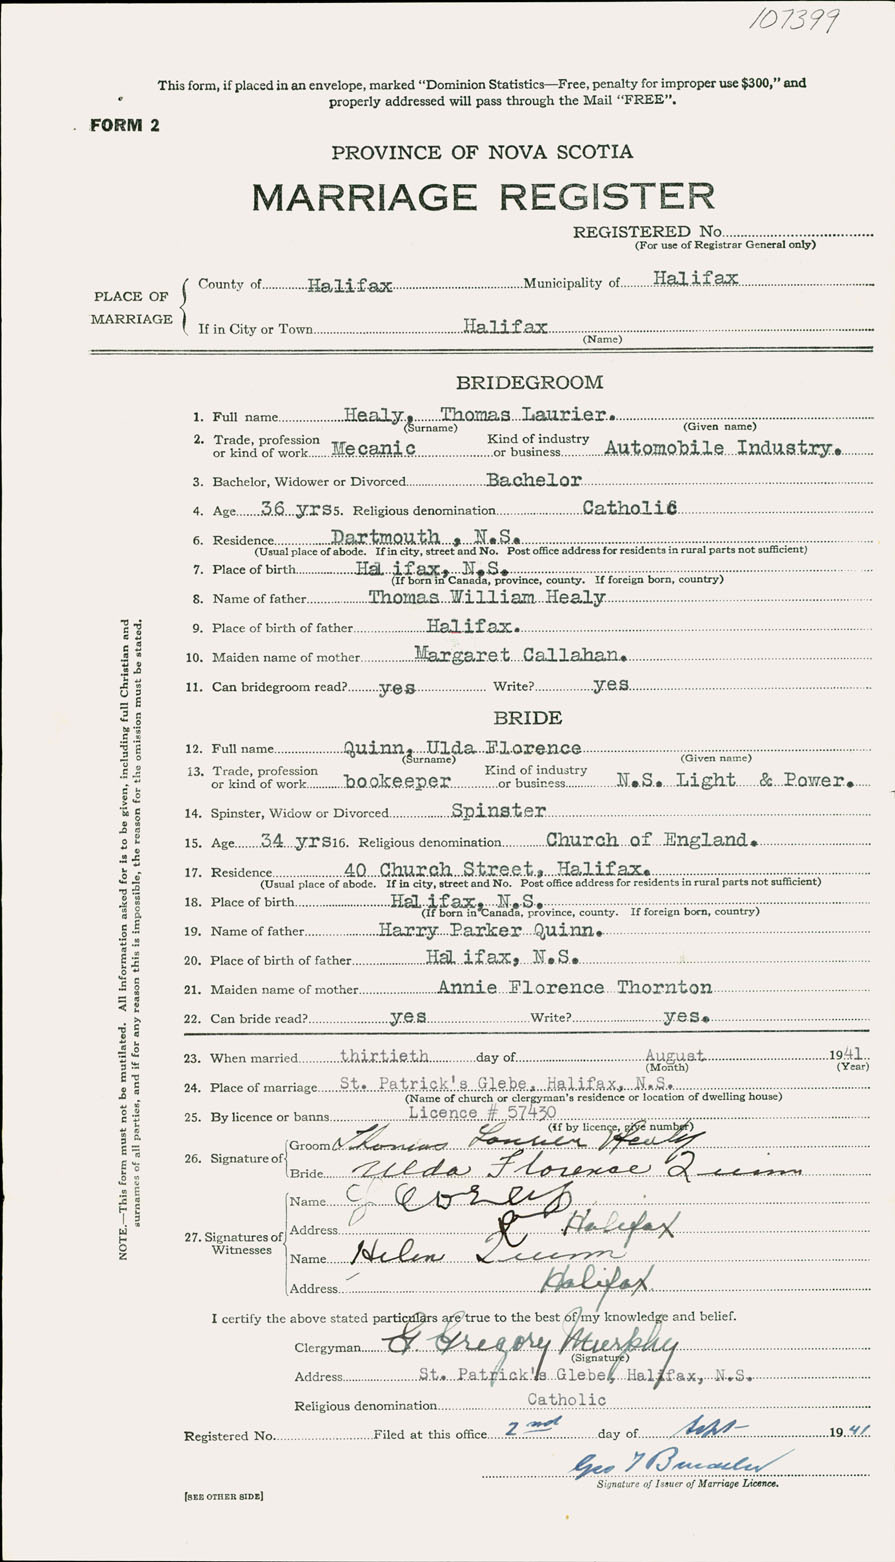 107399
This form, if placed in an envelope, marked "Dominion Statistics—Free, penalty for improper use $300," and
properly addressed will pass through the Mail "FREE".
FORM 2
PROVINCE OF NOVA SCOTIA
MARRIAGE REGISTER
REGISTERED No.
(For use of Registrar General only)
PLACE OF MARRIAGE
County of Halifax Municipality of Halifax
If in City or Town Halifax
(Name)
BRIDEGROOM
1. Full name Healy, Thomas Laurier.
(Surname) (Given name)
2. Trade, profession or kind of work Mecanic Kind of industry or business Automobile Industry.
3. Bachelor, Widower or Divorced Bachelor
4. Age 36 yrs 5. Religious denomination Catholic
6. Residence Dartmouth , N.S.
(Usual place of abode. If in city, street and No. Post office address for residents in rural parts not sufficient)
7. Place of birth Hal ifax, N.S.
(If born in Canada, province, county. If foreign born, country)
8. Name of father Thomas William Healy
9. Place of birth of father Halifax.
10. Maiden name of mother Margaret Callahan.
11. Can bridegroom read? yes Write? yes
BRIDE
12. Full name Quinn, Ulda Florence
(Surname) (Given name)
13. Trade, profession or kind of work bookeeper Kind of industry or business N.S. Light & Power.
14. Spinster, Widow or Divorced Spinster
15. Age 34 yrs 16. Religious denomination Church of England.
17. Residence 40 Church Street, Halifax.
(Usual place of abode. If in city, street and No. Post office address for residents in rural parts not sufficient)
18. Place of birth Hal ifax, N.S.
(If born in Canada, province, county. If foreign born, country)
19. Name of father Harry Parker Quinn.
20. Place of birth of father Hal ifax, N.S.
21. Maiden name of mother Annie Florence Thornton
22. Can bride read? yes Write? yes.
23. When married thirtieth day of August 1941
(Month) (Year)
24. Place of marriage St. Patrick's Glebe, Halifax, N.S.
(Name of church or clergyman's residence or location of dwelling house)
25. By licence or banns Licence # 57430
(If by licence, give number)
26. Signature of
Groom Thomas Laurier Healy
Bride Ulda Florence Quinn
27. Signatures of Witnesses
Name
Address Halifax
Name Helen Quinn
Address Halifax
I certify the above stated particulars are true to the best of my knowledge and belief.
Clergyman G Gregory Murphy
(Signature)
Address St. Patrick's Glebe, Halifax, N.S.
Religious denomination Catholic
Registered No. Filed at this office 2nd day of Sept 1941
Geo T
Signature of Issuer of Marriage Licence.
[SEE OTHER SIDE]
NOTE.—This form must not be mutilated. All information asked for is to be given, including full Christian and
surnames of all parties, and if for any reason this is impossible, the reason for the omission must be stated.